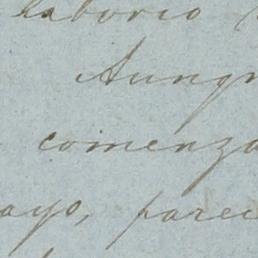 laborio
Aunqu
comenza
ayo, parec